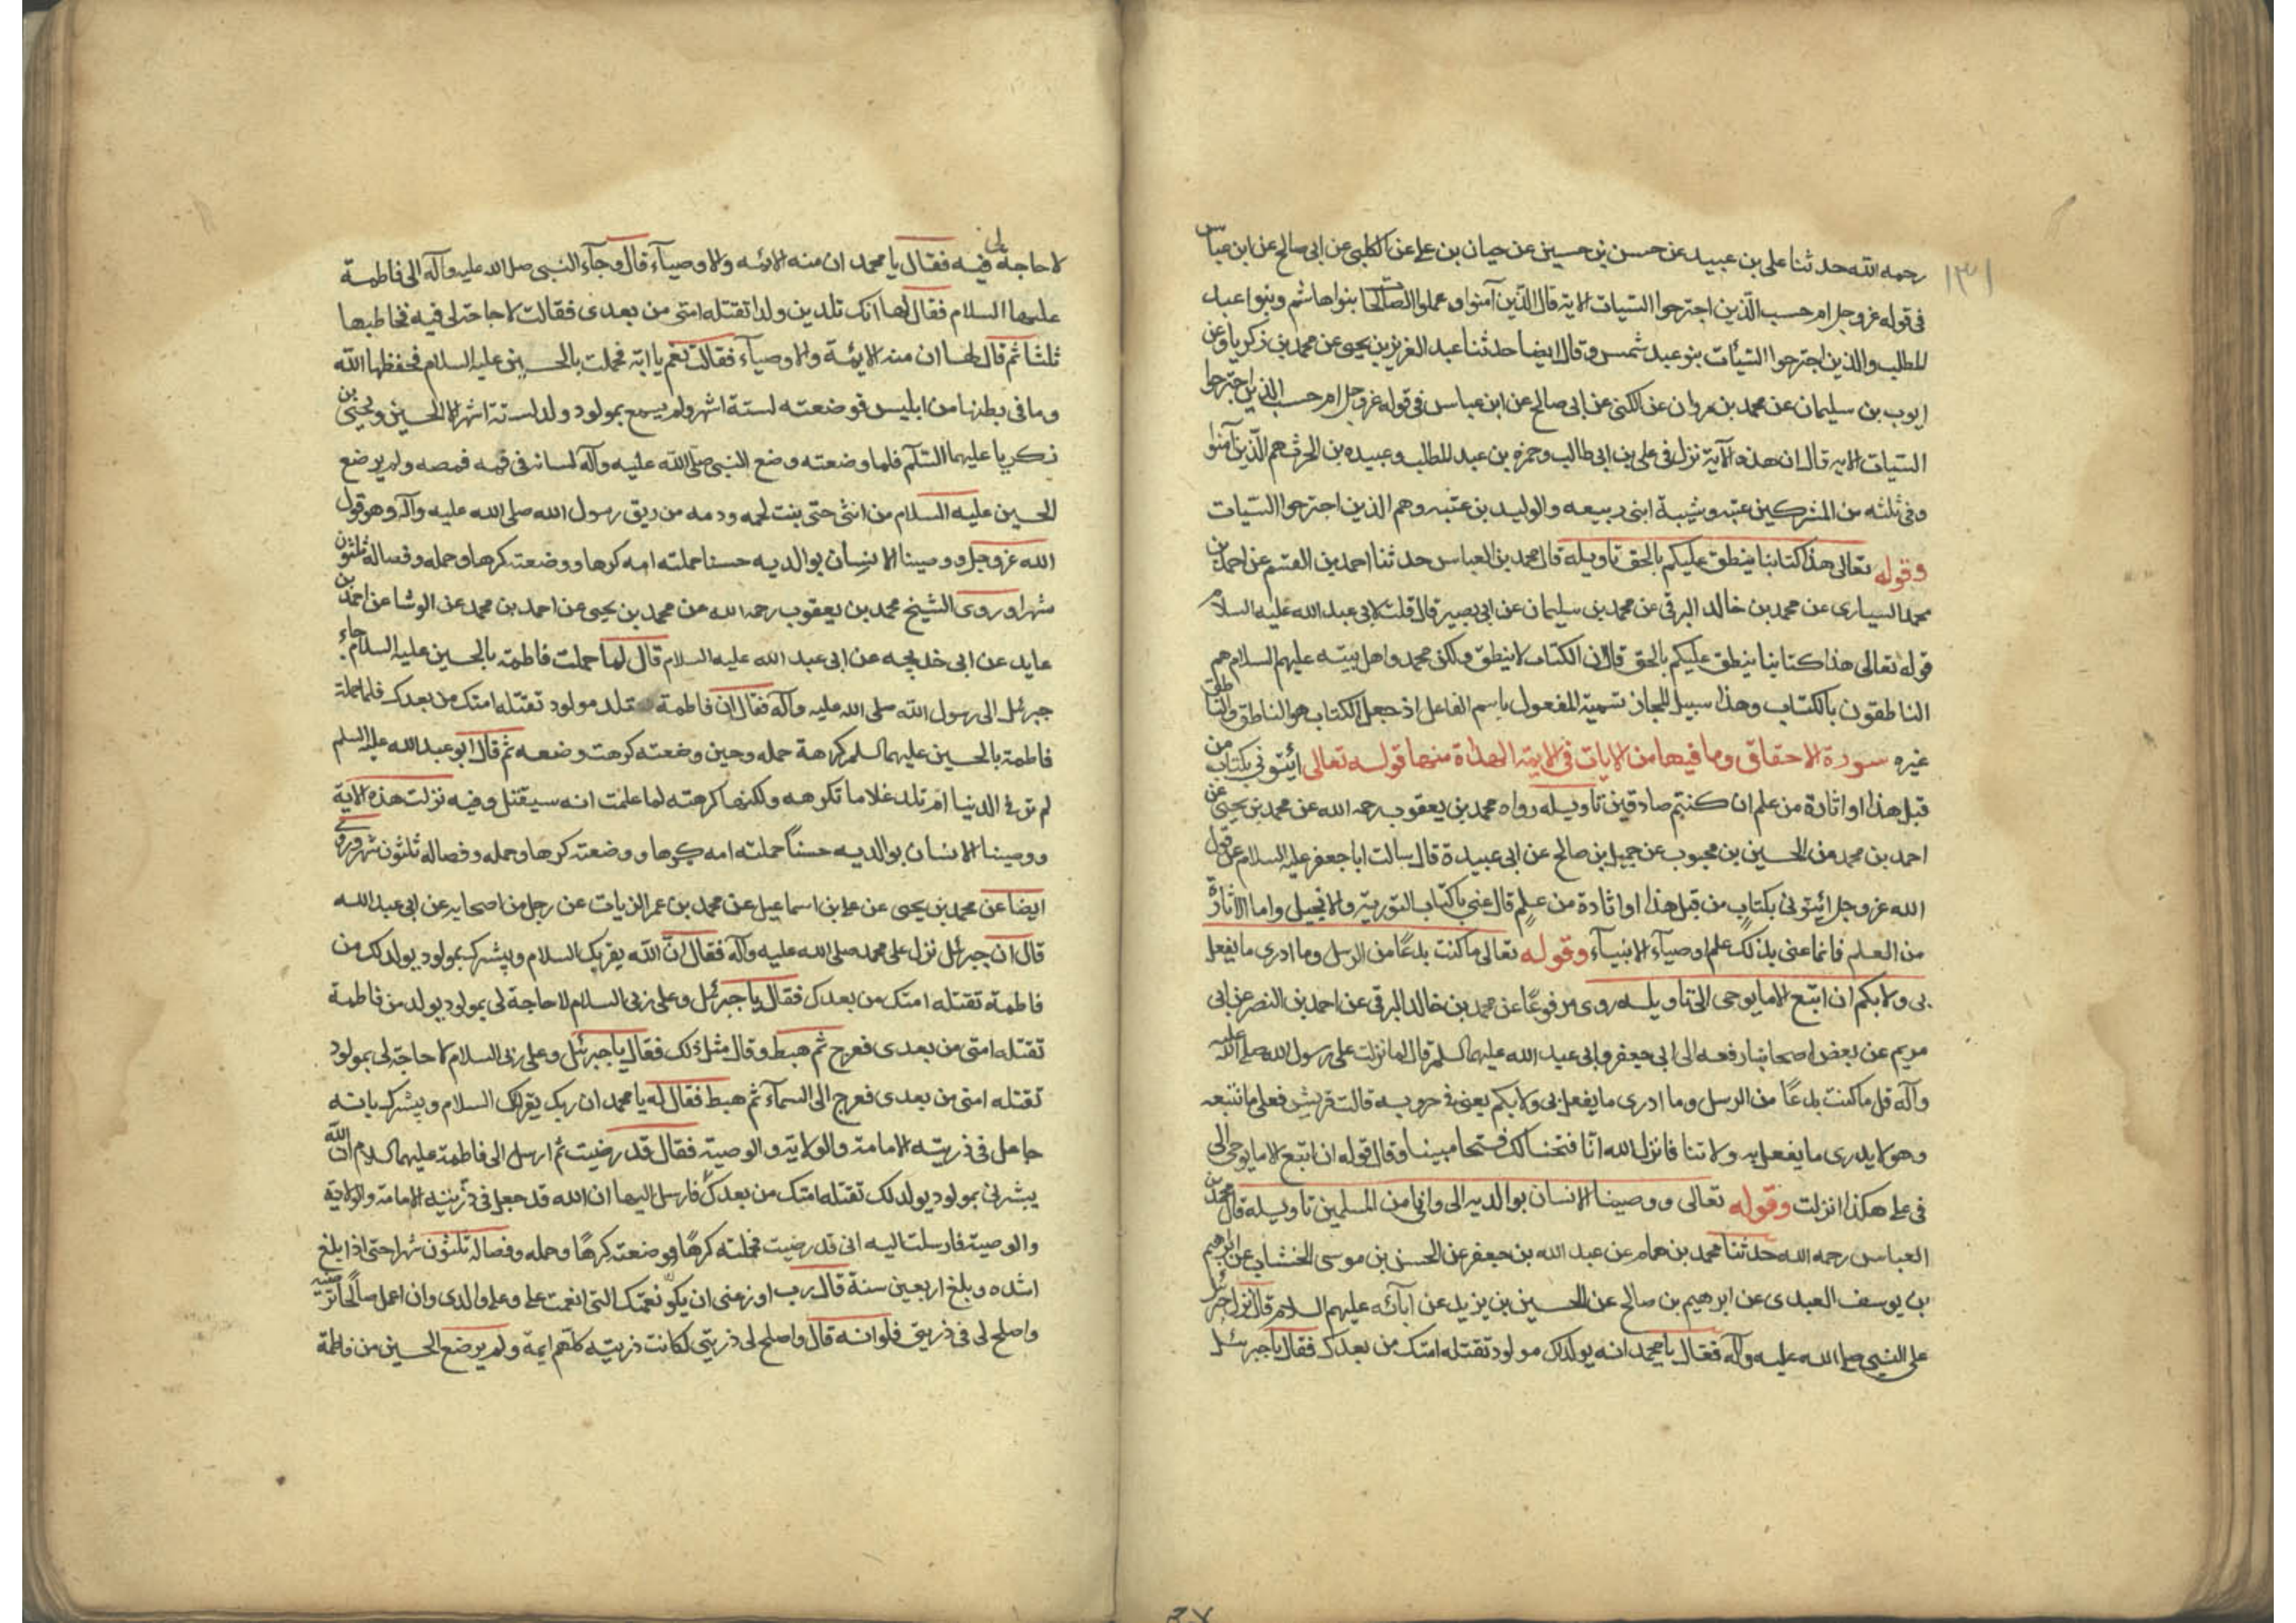 ١٣١
رحمه الله حدثنا علی بن عبید عن حسن بن حسین عن حیان بن علی عن الکلبی عن ابی صالح عن ابن عباس
فی قوله عز وجل ام حسب الذین اجترحوا السیئات الایه قال الذین آمنوا وعملوا الصالحات بنوا هاشم وبنوا عبد
المطلب والذین اجترحوا السیئات بنو عبد شمس وقال ایضا حدثنا عبد العزیز بن یحیی عن محمد بن زکریا عن
ایوب بن سلیمان عن محمد بن مروان عن الکلبی عن ابی صالح عن ابن عباس فی قوله عز وجل ام حسب الذین اجترحوا
السیئات الایه قال ان هذه الآیة نزل فی علی بن ابی طالب وحمزه بن عبد المطلب وعبیده بن الحرث هم الذین آمنوا
وفی ثلثه من المشرکین عتبه وشیبة ابنی ربیعه والولید بن عتبه وهم الذین اجترحوا السیئات
وقوله تعالی هذا کتابنا ینطق علیکم بالحق تاویله قال محمد بن العباس حدثنا احمد بن القسم عن احمد بن
محمد السیاری عن محمد بن خالد البرقی عن محمد بن سلیمان عن ابی بصیر قال قلت لابی عبد الله علیه السلام
قوله تعالی هذا کتابنا ینطق علیکم بالحق قال ان الکتاب لا ینطق ولکن محمد واهل بیته علیهم السلام هم
الناطقون بالکتاب وهذا سبیل المجاز تسمیة المفعول باسم الفاعل اذ جعل الکتاب هو الناطق والناطق
غیره سورة الاحقاف وما فیها من الایات فی الایمة الهداة منها قوله تعالی ائتونی بکتاب من
قبل هذا او اثارة من علم ان کنتم صادقین تاویله رواه محمد بن یعقوب رحمه الله عن محمد بن یحیی عن
احمد بن محمد عن الحسین بن محبوب عن جمیل بن صالح عن ابی عبیدة قال سالت ابا جعفر علیه السلام عن قول
الله عز وجل ائتونی بکتاب من قبل هذا او اثارة من علم قال عنی بالکتاب التوریة والانجیل واما الاثارة
من العلم فانما عنی بذلک علم اوصیاء الانبیآء وقوله تعالی ما کنت بدعًا من الرسل وما ادری ما یفعل
بی ولا بکم ان اتبع الا ما یوحی الی تاویله روی مرفوعًا عن محمد بن خالد البرقی عن احمد بن النضر عن ابی
مریم عن بعض اصحابنا رفعه الی ابی جعفر وابی عبد الله علیهما السلم قال لما نزلت علی رسول الله صلی الله علیه
وآله قل ما کنت بدعًا من الرسل وما ادری ما یفعل بی ولا بکم یعنی فی حروبه قالت قریش فعلی ما نتبعه
وهو لا یدری ما یفعل به ولا بنا فانزل الله انا فتحنا لک فتحا مبینا وقال قوله ان اتبع الا ما یوحی الی
فی علی هکذا انزلت وقوله تعالی ووصینا الانسان بوالدیه الی وانی من المسلمین تاویله قال محمد بن
العباس رحمه الله حدثنا محمد بن همام عن عبد الله بن جعفر عن الحسن بن موسی الخشاب عن ابرهیم
بن یوسف العبدی عن ابرهیم بن صالح عن الحسین بن یزید عن آبائه علیهم السلام قال نزل جبرئیل
علی النبی صلی الله علیه وآله فقال یا محمد انه یولد لک مولود تقتله امتک من بعدک فقال یا جبرئیل
لا حاجة لی فیه فقال یا محمد ان منه الائمه والاوصیآء قال وجآء النبی صلی الله علیه وآله الی فاطمة
علیها السلام فقال لها انک تلدین ولدا تقتله امتی من بعدی فقالت لا حاجة لی فیه فخاطبها
ثلثا ثم قال لها ان منه الایمة والاوصیآء فقالت نعم یا ابة فحملت بالحسین علیه السلام فحفظها الله
وما فی بطنها من ابلیس فوضعته لستة اشهر ولم یسمع بمولود ولد لستة اشهر الا الحسین ویحیی بن
زکریا علیهما السّلم فلما وضعته وضع النبی صلی الله علیه وآله لسانه فی فمه فمصه ولم یرضع
الحسین علیه السلام من انثی حتی نبت لحمه ودمه من ریق رسول الله صلی الله علیه وآله وهو قول
الله عز وجل ووصینا الانسان بوالدیه حسنا حملته امه کرها ووضعته کرها وحمله وفصاله ثلثون
شهرا وروی الشیخ محمد بن یعقوب رحمه الله عن محمد بن یحیی عن احمد بن محمد عن الوشا عن احمد بن
عاید عن ابی خدیجه عن ابی عبد الله علیه السلام قال لما حملت فاطمة بالحسین علیه السلام جاء
جبرئیل الی رسول الله صلی الله علیه وآله فقال ان فاطمة ستلد مولود تقتله امتک من بعدک فلما حملت
فاطمة بالحسین علیهما السلم کرهة حمله وحین وضعته کرهت وضعه ثم قال ابو عبد الله علیه السلم
لم تر فی الدنیا ام تلد غلاما تکرهه ولکنها کرهته لما علمت انه سیقتل وفیه نزلت هذه الایة
ووصینا الانسان بوالدیه حسناً حملته امه کرها ووضعته کرها وحمله وفصاله ثلثون شهرا وروی
ایضا عن محمد بن یحیی عن علی بن اسماعیل عن محمد بن عمر الزیات عن رجل من اصحابه عن ابی عبد الله
قال ان جبرئیل نزل علی محمد صلی الله علیه وآله فقال ان الله یقریک السلام ویبشرک بمولود یولد لک من
فاطمة تقتله امتک من بعدک فقال یا جبرئیل وعلی ربی السلام لا حاجة لی بمولود یولد من فاطمة
تقتله امتی من بعدی فعرج ثم هبط وقال مثل ذلک فقال یا جبرئیل وعلی ربی السلام لا حاجة لی بمولود
تقتله امتی من بعدی فعرج الی السمآء ثم هبط فقال له یا محمد ان ربک یقرئک السلام ویبشرک بانه
جاعل فی ذریته الامامة والولایة والوصیة فقال قد رضیت ثم ارسل الی فاطمة علیهما السلام ان الله
یبشرنی بمولود یولد لک تقتله امتک من بعدک فارسل الیها ان الله قد جعل فی ذریته الامامة والولایة
والوصیة فارسلت الیه انی قد رضیت فحملته کرهًا ووضعته کرهًا وحمله وفصاله ثلثون شهرا حتی اذا بلغ
اشده وبلغ اربعین سنة قال رب اوزعنی ان اشکر نعمتک التی انعمت علی وعلی والدی وان اعمل صالحًا ترضیه
واصلح لی فی ذریتی فلو انه قال واصلح لی ذریتی لکانت ذریته کلهم ایمة ولم یرضع الحسین من فاطمة